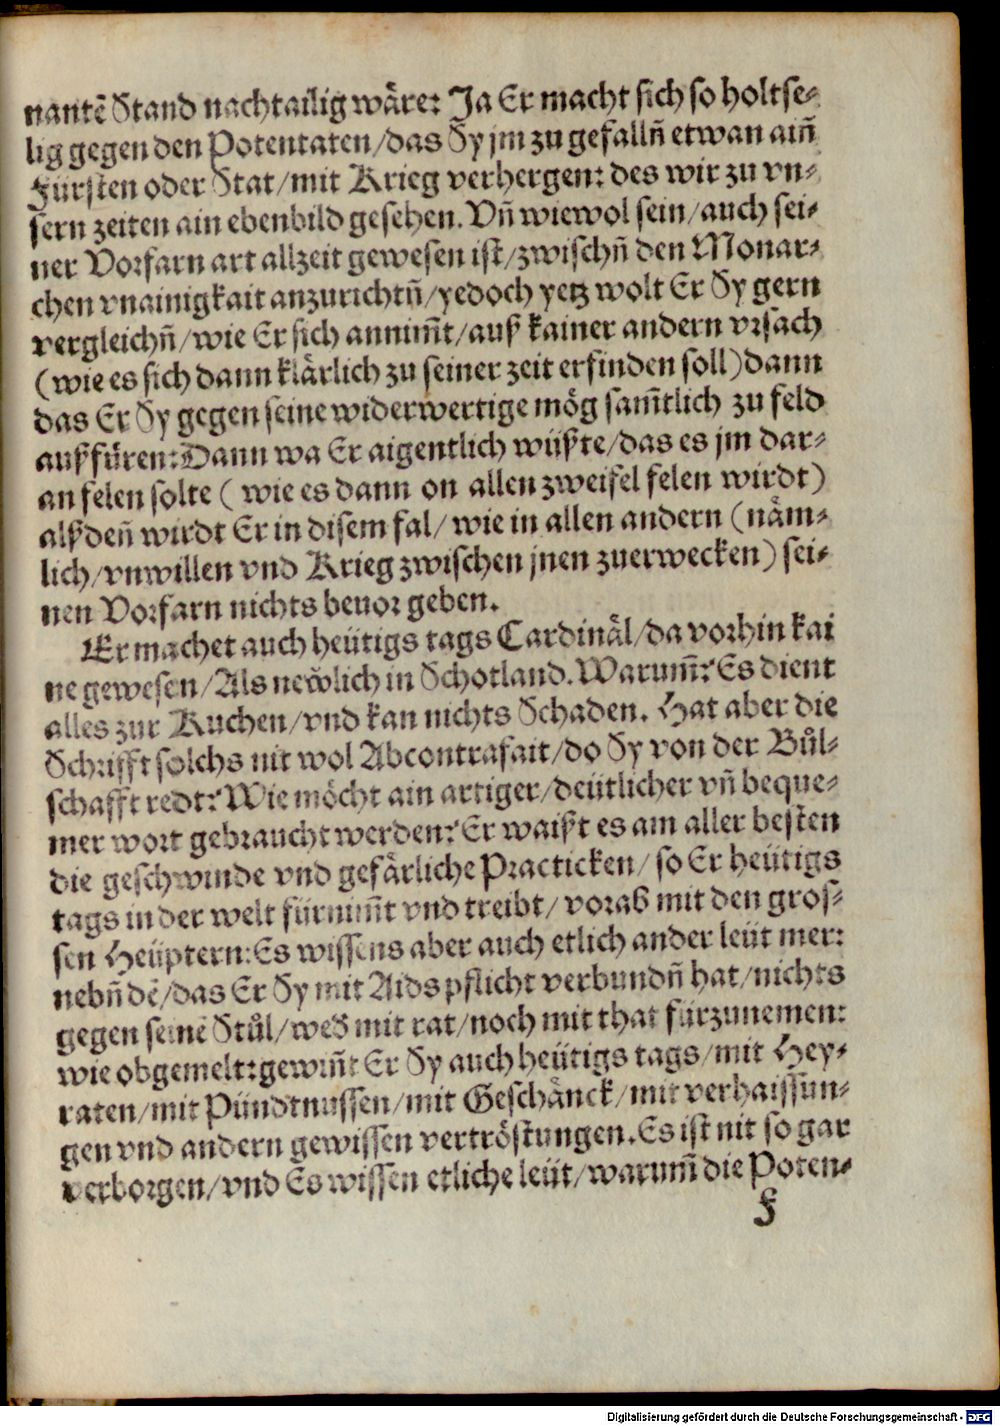 nantẽ Stand nachtailig wäre: Ja Er macht sich so holtse-
lig gegen den Potentaten/das Sy jm zu gefallñ etwan aiñ
Fürsten oder Stat/mit Krieg verhergen: des wir zu vn-
sern zeiten ain ebenbild gesehen. Vñ wiewol sein/auch sei-
ner Vorfarn art allzeit gewesen ist/zwischñ den Monar-
chen vnainigkait anzurichtñ/yedoch yetz wolt Er Sy gern
vergleichñ/wie Er sich annim̃t/auß kainer andern vrsach
(wie es sich dann klärlich zu seiner zeit erfinden soll)dann
das Er Sy gegen seine widerwertige mög sam̃tlich zu feld
außfüren:Dann wa Er aigentlich wüßte/das es jm dar-
an felen solte ( wie es dann on allen zweifel felen wirdt)
alßdeñ wirdt Er in disem fal/ wie in allen andern (näm-
lich/vnwillen vnd Krieg zwischen jnen zuerwecken) sei-
nen Vorfarn nichts beuor geben.
Er machet auch heütigs tags Cardinäl/da vorhin kai
ne gewesen/Als newlich in Schotland. Warum̃? Es dient
alles zur Kuchen/vnd kan nichts Schaden. Hat aber die
Schrifft solchs nit wol Abcontrafait/do Sy von der Bůl-
schafft redt? Wie möcht ain artiger/deütlicher vñ beque-
mer wort gebraucht werden? Er waißt es am aller besten
die geschwinde vnd gefärliche Practicken/ so Er heütigs
tags in der welt fürnim̃t vnd treibt/ vorab mit den gros-
sen Heüptern:Es wissens aber auch etlich ander leüt mer:
nebñ dẽ/das Er Sy mit Aids pflicht verbundñ hat/nichts
gegen seinẽ Stůl/wed mit rat/noch mit that fürzunemen:
wie obgemelt:gewiñt Er Sy auch heütigs tags/mit Hey-
raten/mit Pündtnussen/mit Geschänck/mit verhaissun-
gen vnd andern gewissen vertröstungen.Es ist nit so gar
verborgen/vnd Es wissen etliche leüt/warum̃ die Poten-
F
Digitalisierung gefördert durch die Deutsche Forschungsgemeinschaft - DFG